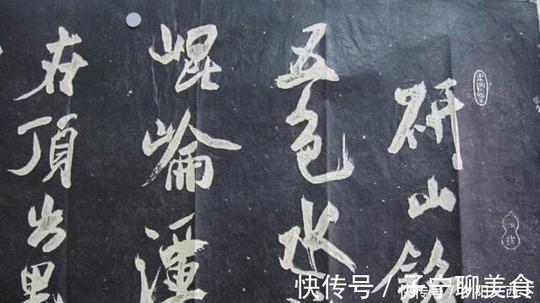 研山銘
五色水
崐崘潭
在頂出黑
快传号 / 子宁聊美食